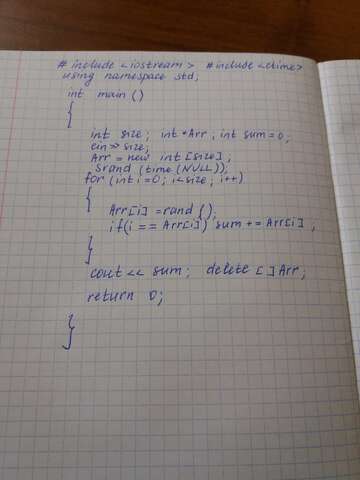 # include <iostream> # include <ctime>
using namespace std;
int main ()
{
int size; int *Arr; int sum=0;
cin>> size;
Arr = new int [size];
srand (time (NULL));
for (int i=0; i<size; i++)
{
Arr[i] =rand ();
if(i == Arr[i]) sum += Arr[i];
}
cout << sum; delete []Arr;
return 0;
}